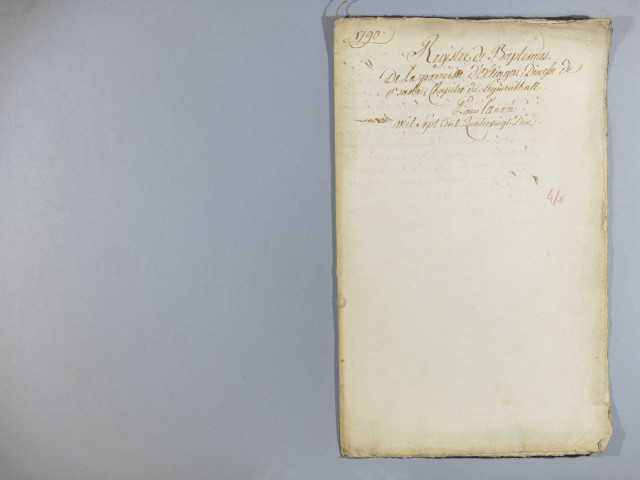 1790.
Registre de Baptesmes
De la paroisse d'Oltingen Diocese de
Basle, Chapitre du Leymenthall
Pour l'année
mil Sept Cent Quatrevingt Dix
4/1